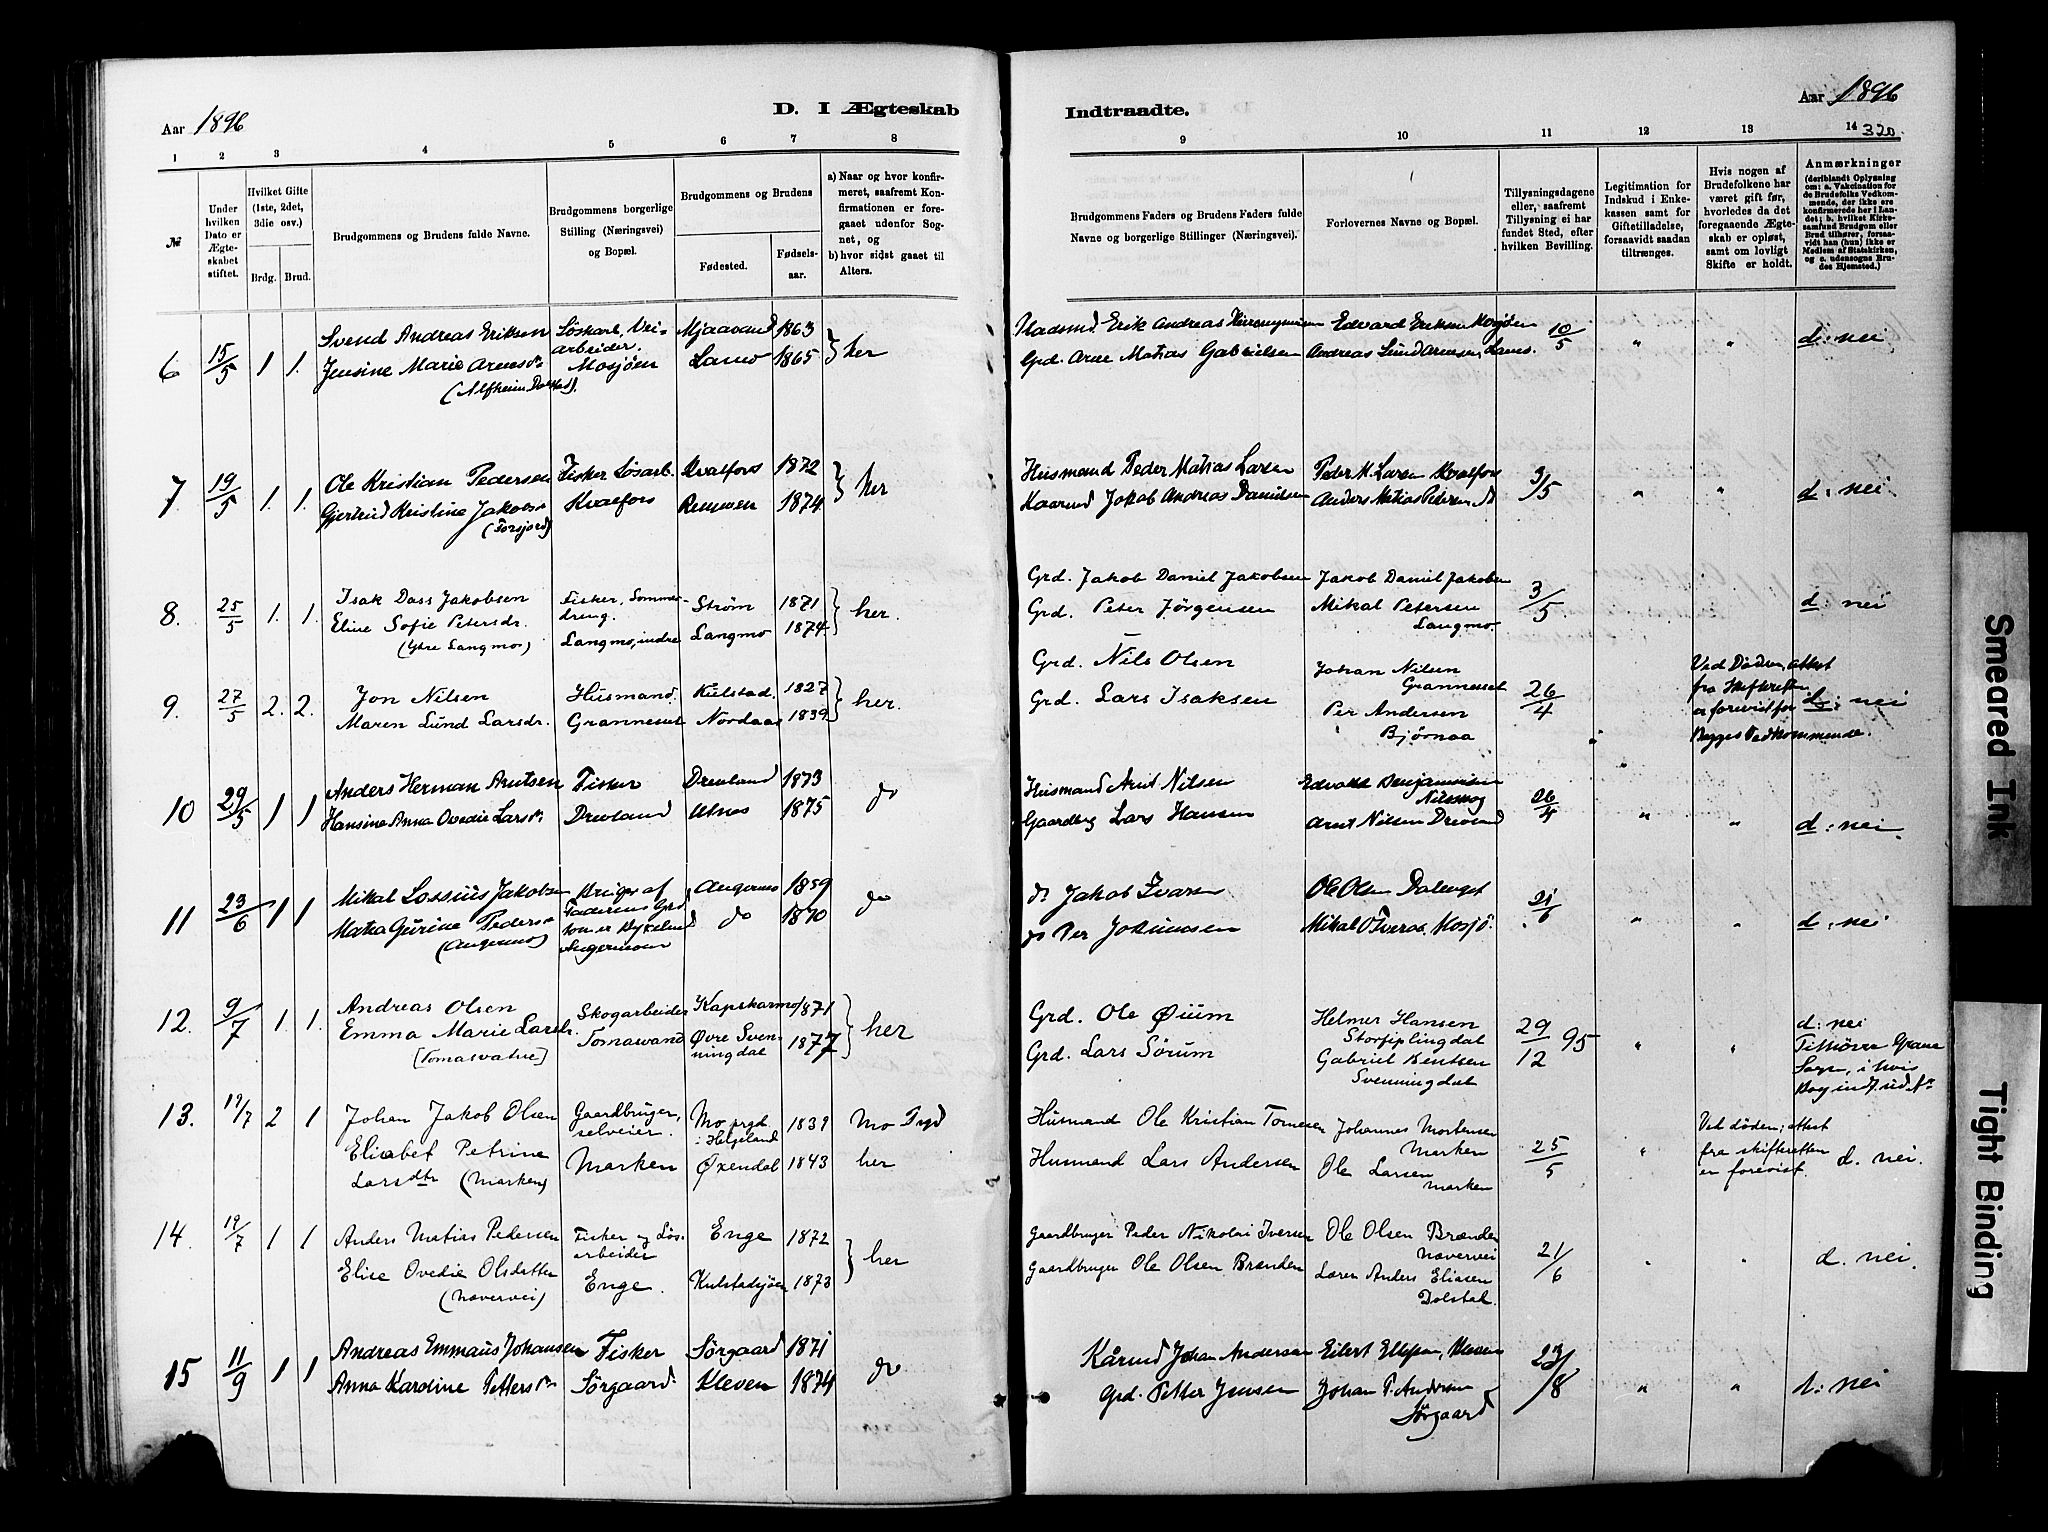 Aar 1896
D. I Ægteskab
Indtraadte.
Aar 1896
320
1 2 3 4 5 6 7 8
9 10 11 12 13 14
№
Under hvilken Dato er Ægteskabet stiftet.
Hvilket Gifte (1ste, 2det, 3die osv.)
Brdg. Brud.
Brudgommens og Brudens fulde Navne.
Brudgommens borgerlige Stilling (Næringsvei) og Bopæl.
Brudgommens og Brudens
Fødested.
Fødselsaar.
a) Naar og hvor konfirmeret, saafremt Konfirmationen er foregaaet udenfor Sognet, og
b) hvor sidst gaaet til Alters.
Brudgommens Faders og Brudens Faders fulde Navne og borgerlige Stillinger (Næringsvei).
Forlovernes Navne og Bopæl.
Tillysningsdagene eller, saafremt Tillysning ei har fundet Sted, efter hvilken Bevilling.
Legitimation for Indskud i Enkekassen samt for Giftetilladelse, forsaavidt saadan tiltrænges.
Hvis nogen af Brudefolkene har været gift før, hvorledes da det foregaaende Ægteskab er opløst, samt om lovligt Skifte er holdt.
Anmærkninger (deriblandt Oplysning om: a. Vakcination for de Brudefolks Vedkommende, der ikke ere konfirmerede her i Landet; b. hvilket Kirkesamfund Brudgom eller Brud tilhører, forsaavidt han (hun) ikke er Medlem af Statskirken, og c. udensogns Brudes Hjemsted.)
6 15/5 1 1. Svend Andreas Eriksen Løskarl, Veiarbeider. Mjaavand 1863 her Erik Andreas Edvard Eriksen Mosjøen 10/5 " " d: nei
Jensine Marie Arnesdr Mosjøen 1865 Grd. Arne Matias Gabrielsen Andreas Lund Arnesen
7. 19/5 1. 1. Ole Kristian Pedersen Fisker Løsarb. Kvalfors 1872 her Husmand Peder Matias Larsen Peder M. Larsen Kvalfors 3/5 " " d: nei
Gjertrud Kristine Jakobsdr Kvalfors 1874 Kaarmd Jakob Andreas Danielsen Anders Matias Pedersen do
(Forsjord)
8. 25/5 1. 1. Isak Dass Jakobsen Fisker, Sommerdreng. Strøm 1871 her. Grd. Jakob Daniel Jakobsen Jakob Daniel Jakobsen 3/5 d: nei
Eline Sofie Petersdr. Langmo, indre Langmo 1874 Grd. Peter Jørgensen Mikal Petersen Langmo.
(Ytre Langmo)
9. 27/5 2. 2. Jon Nilsen Husmand. Kulstad. 1827 her. Grd. Nils Olsen Johan Nilsen Granneset 26/4 Ved Døden, attest fra Skifteretten er forevist for Begges Vedkommende. d: nei
Maren Lund Larsdr. Granneset Nordaas 1839 Grd. Lars Isaksen Per Andersen Bjørnaa
10 29/5 1 1 Anders Herman Arntsen Fisker Drevland 1873 do Husmand Arnt Nilsen Benjaminsen Nilsskog 26/4 " " d: nei.
Hansine Anna Ovedie Larsdr. Drevland 1875 Gaardbrg Lars Hansen Arnt Nilsen Drevland
11 23/6 1 1 Mikal Lossius Jakobsen Bruger af Faderens Grd som er Angermoen 1859 do do Jakob Ivarsen Ole Olsen 21/6 " " d: nei
Gurine Pedersdr do 1870 do Per Mikal Mosjø.
(Angermo)
12. 9/7 1. 1. Andreas Olsen Skogarbeider Kapskarmo 1871 her Grd. Ole Øium Helmer Hansen Storfiplingdal 29/12 95 " " d: nei
Emma Marie Larsdr. Tomasvand Øvre Svenningdal 1877 Grd. Lars Sørum Gabriel Bentsen Svenningdal
[Tomasvatne]
13. 19/7 2 1 Johan Jakob Olsen Gaardbruger, selveier. Mo prgd i Helgeland 1839 Mo Husmand Ole Kristian Johannes Mortensen Marken 25/5 " Ved døden; attest fra skifteretten er forevist. d. nei.
Elisabet Petrine Larsdtr (Marken) Marken Øxendal 1843 her Husmand Lars Andersen Ole Larsen Marken
14. 19/7 1 1 Anders Matias Pedersen Fisker og Løsarbeider Enge 1872 her Gaardbruger Peder Nikolai Iversen Ole Olsen Brænden Nævervei 21/6 " " d. nei.
Elise Ovedie Olsdatter Enge. Kulstadsjøen 1873 Gaardbruger Ole Olsen Brænden Anders Eliasen Dolstad.
(Nævervei)
15 11/9 1 1 Andreas Emmaus Johansen Fisker Sørgaard 1871 do Kårmd Johan Andersen Eilert 23/8 " " d: nei
Anna Karoline Pettersdr Sørgaard. Kleven 1874 Grd. Petter Jensen Johan P. Andersen Sørgaard
Smeared Ink
Tight Binding